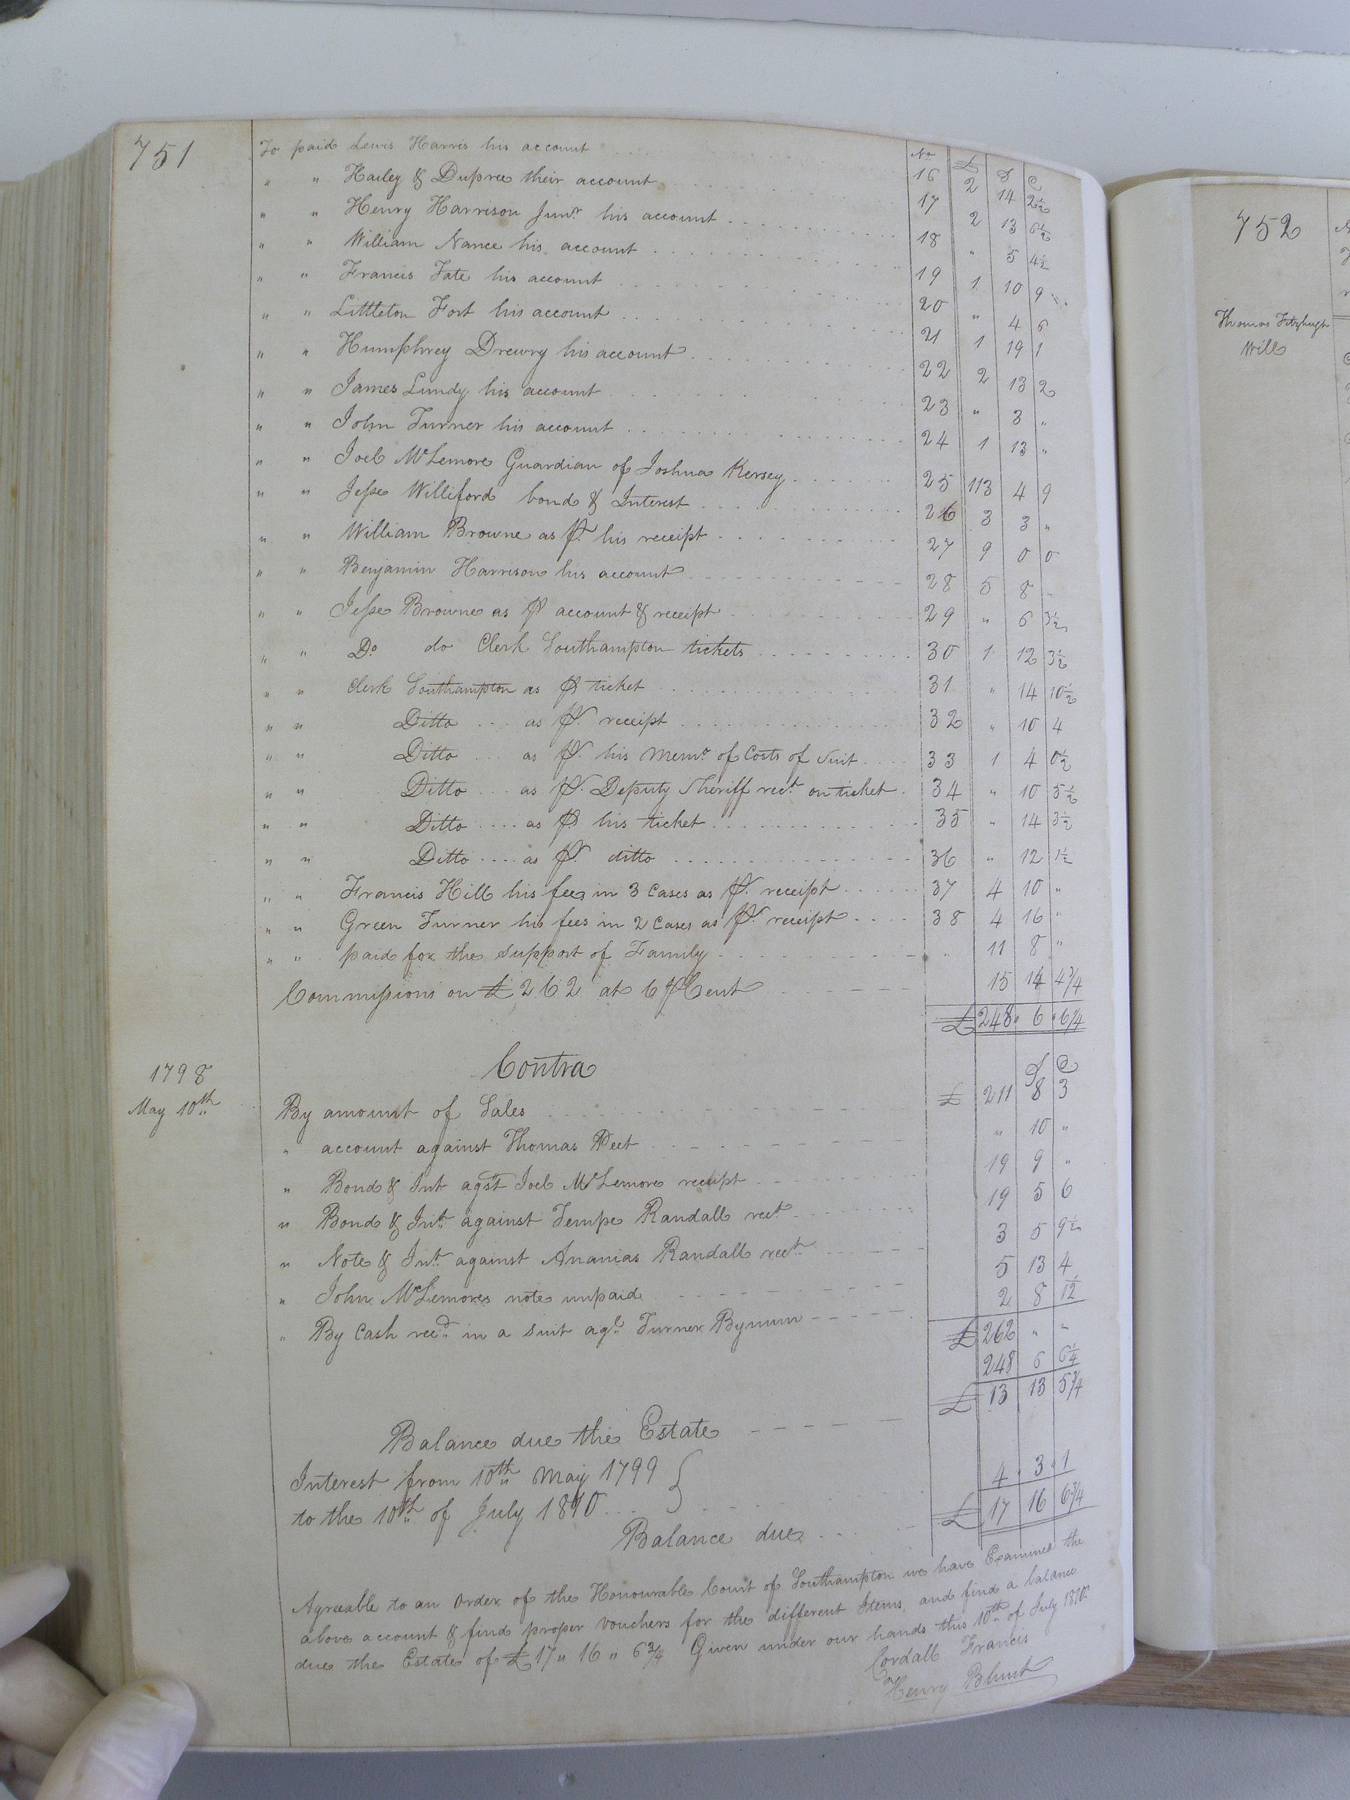 751
To paid Lewis Harris his account
No £ S D
16 2 14 2½
" " Hailey & Dupree their account 17 2 13 6½
" " Henry Harrison Junr his account 18 " 5 4½
" " William Nance his account 19 1 10 9
" " Francis Tate his account 20 " 4 6
" " Littleton Fort his account 21 1 19 1
" " Humphrey Drewry his account 22 2 13 2
" " James Lundy his account 23 " 3 "
" " John Turner his account 24 1 13 "
" " Joel McLemore Guardian of Joshua Kersey 25 113 4 9
" " Jesse Williford bond & Interest 26 3 3 "
" " William Browne as pr. his receipt 27 9 0 0
" " Benjamin Harrison his account 28 5 8 -
" " Jesse Browne as pr account & receipt 29 " 6 3½
" " Do do Clerk Southampton tickets 30 1 12 3½
" " Clerk Southampton as pr ticket 31 " 14 10½
" " Ditto as pr. receipt 32 " 10 4
" " Ditto as pr. his Memo of Costs of Suit 33 1 4 0½
" " Ditto as pr. Deputy Sheriff rect on ticket 34 " 10 5½
" " Ditto as pr his ticket 35 " 14 3½
" " Ditto as pr. ditto 36 " 12 1½
" " Francis Hill his fees in 3 Cases as pr. receipt 37 4 10 "
" " Green Turner his fees in 2 Cases as pr. receipt 38 4 16 "
" " paid for the support of Family " 11 8 "
Commissions on £262 at 6 prCent 15 14 4¾
£ 248 " 6 " 6¼
Contra
1798
May 10th
S D
By amount of Sales £ 211 8 3
" account against Thomas Peet " 10 "
" Bond & Int agst Joel McLemore receipt 19 9 "
" Bond & Int. against Tempe Randall rect 19 5 6
" Note & Int. against Ananias Randall rect 3 5 9½
" John McLemores note unpaid 5 13 4
" By Cash recd. in a Suit agt Turner Bynum 2 8 1½
£ 262 " "
248 6 6¼
Balance due the Estate £ 13 13 5¾
Interest from 10th May 1799
to the 10th of July 1810 4 " 3 " 1
Balance due £ 17 16 6¾
Agreeable to an order of the Honourable Court of Southampton we have Examined the
above account & find proper vouchers for the different Items, and find a balance
due the Estate of £17 " 16 " 6¾ Given under our hands this 10th of July 1810
Cordall Francis
Henry Blunt
752
Thomas Fitzhugh
Will